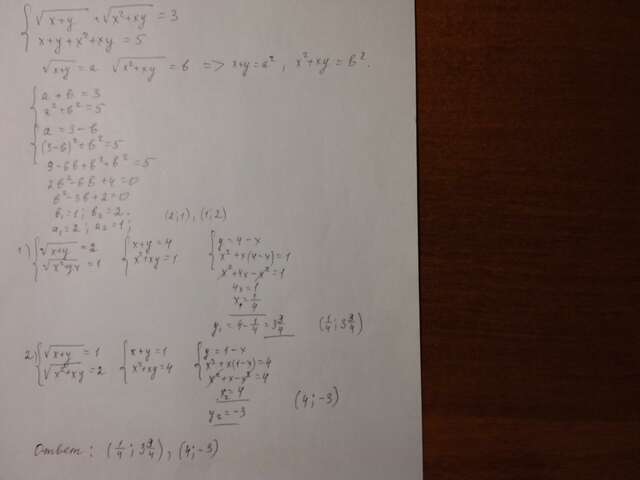 { √x+y + √x²+xy = 3
x+y+x²+xy = 5
√x+y = a √x²+xy = в => x+y = a², x²+xy = в².
{ a+в = 3
a²+в² = 5
{ a = 3-в
(3-в)²+в² = 5
9-6в+в²+в² = 5
2в²-6в+4=0
в²-3в+2=0
в₁=1; в₂=2.
a₁=2; a₂=1; (2;1), (1;2)
1) { √x+y = 2
√x²+yx = 1
{ x+y = 4
x²+xy = 1
{ y = 4-x
x²+x(4-x)=1
x²+4x-x²=1
4x=1
x₁=1/4
y₁=4-1/4=3 3/4 (1/4; 3 3/4)
2) { √x+y = 1
√x²+xy = 2
{ x+y=1
x²+xy=4
{ y=1-x
x²+x(1-x)=4
x²+x-x²=4
x₂=4
y₂=-3 (4;-3)
Ответ: (1/4; 3 3/4), (4;-3)